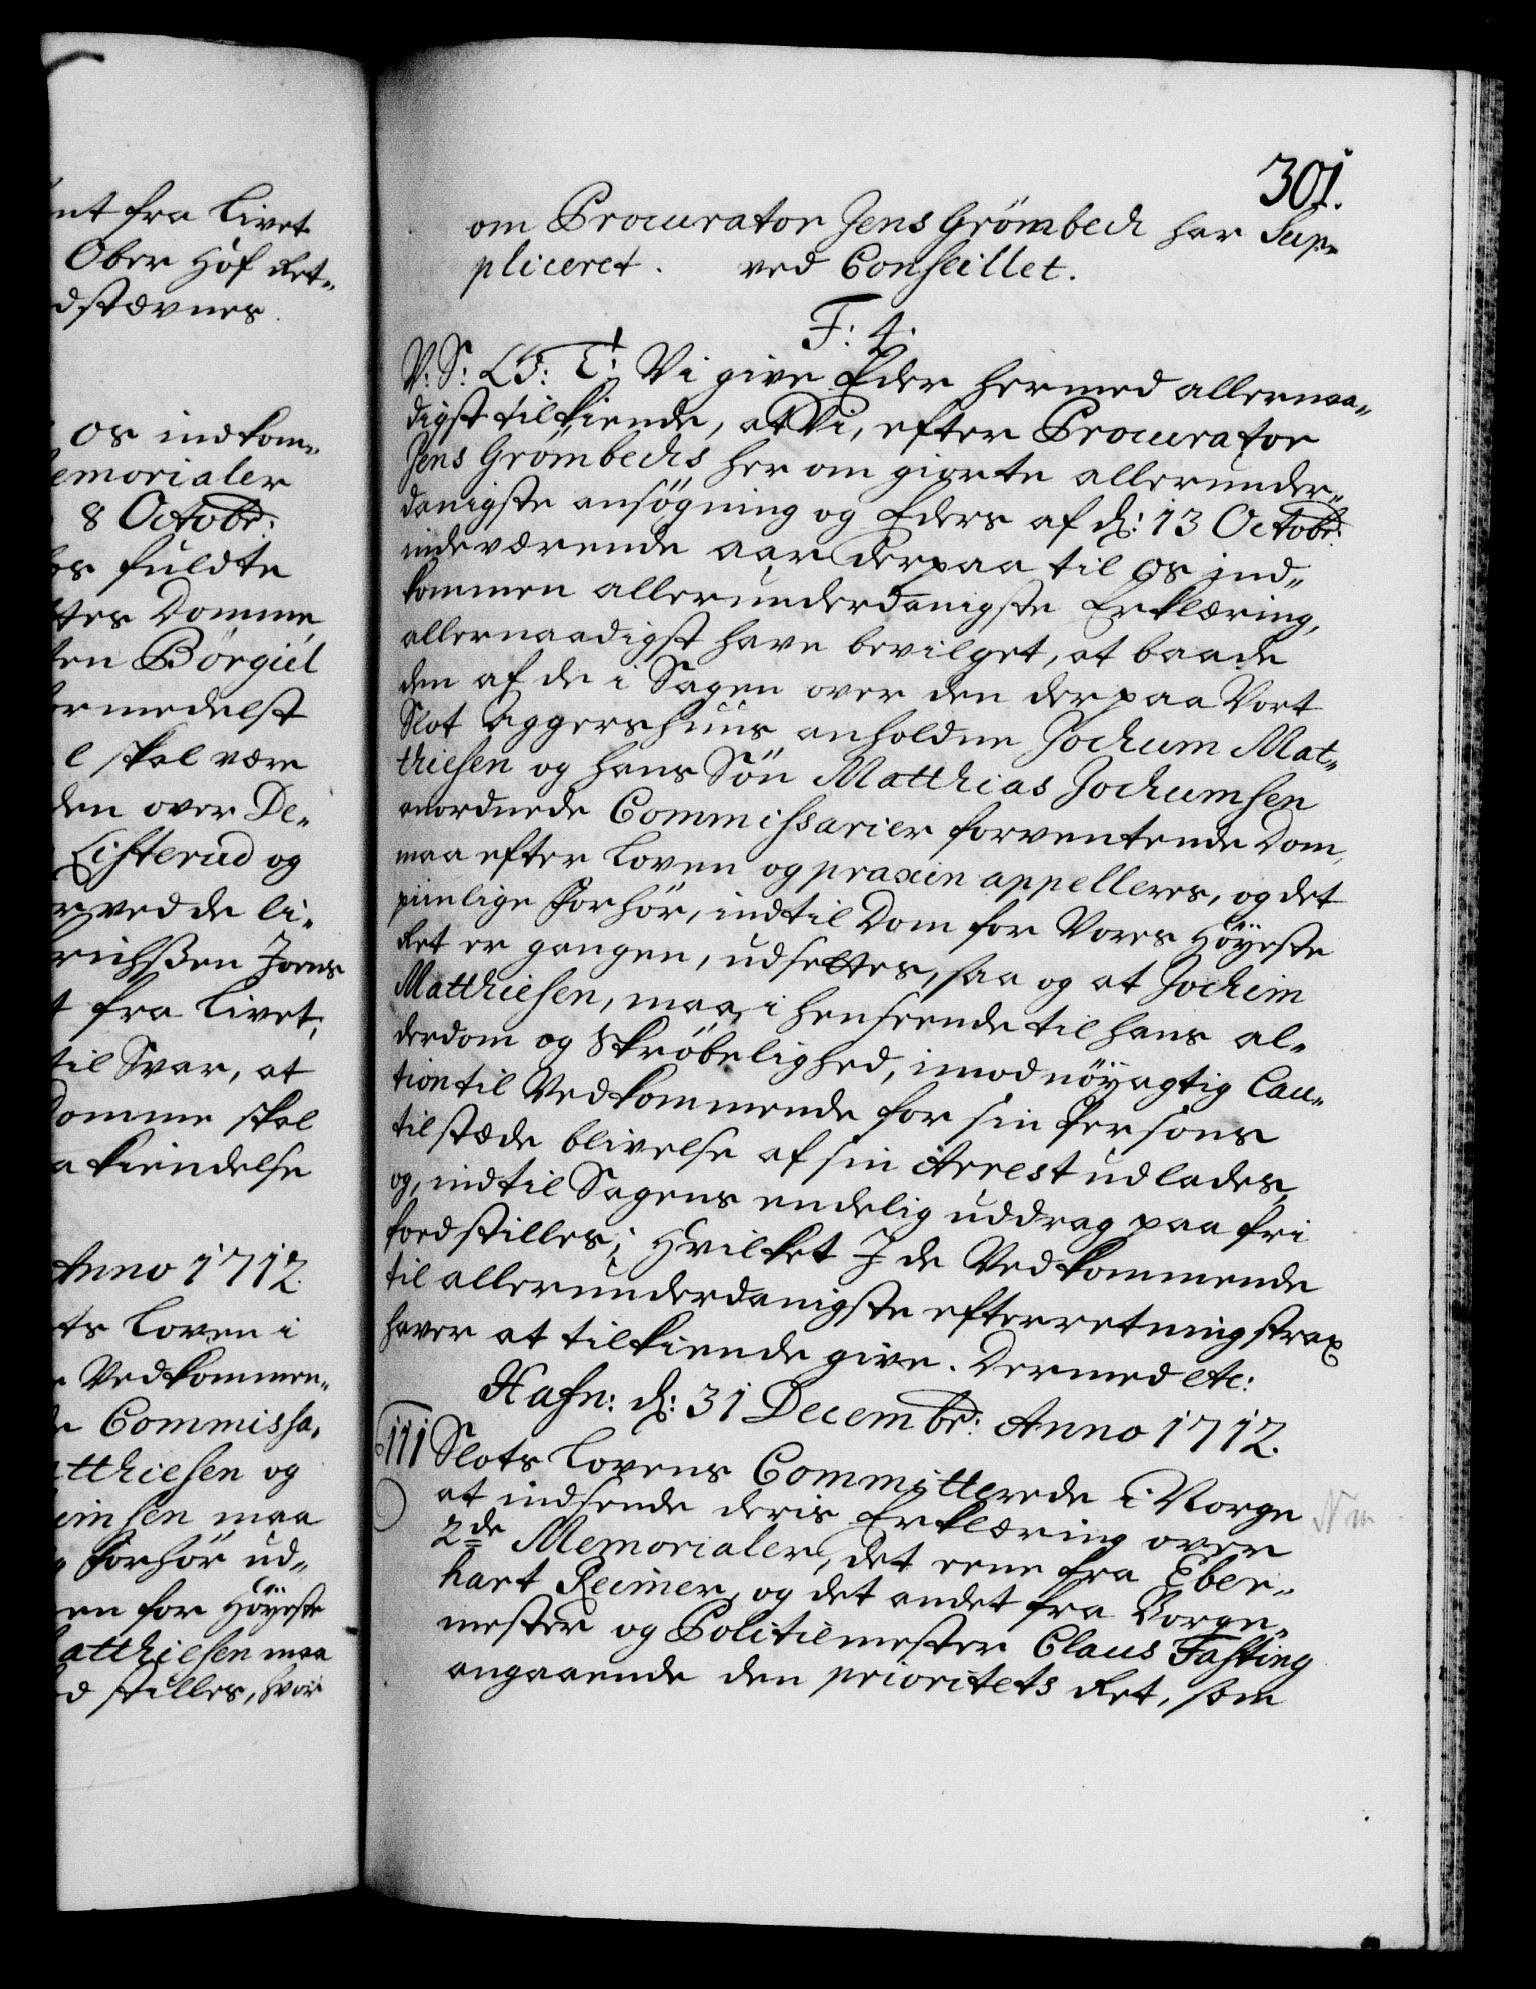 nt fra livet
Ober Hof Ret„
dstævnes.
os indkom„
emorialer
8 Octobr:
os fuldte
ttes Domme
ten Börgiel
ormedelst
l skal være
den over De„
Listerud og
rved de li„
richßen Joens
t fra livet,
til Svar, at
Domme skal
a kiendelse
Anno 1712.
ts Loven i
e Vedkommen„
de Commissa„
atthiesen og
imsen maa
forhör ud„
en for Höyeste
atthiesen maa
d stilles, hvor
301.
om Procurator Jens Grömbech har Sup„
pliceret. ved Conseillet.
F: 4.
V: S: G: T: Vi give Eder hermed allernaa„
digst tilkiende, at Vi, efter Procurator
Jens Grömbechs her om giorte allerunder„
danigste ansögning og Eders af d: 13 Octobr:
indeværende aar derpaa til os ind„
kommen allerunderdanigste Erklæring,
allernaadigst have bevilget, at baade
den af de i Sagen over den der paa Vort
Slot Aggershuus anholdne Jochum Mat„
thiesen og hans Sön Matthias Jochumsen
anordnede Commissarier forventende Dom,
maa efter Loven og praxin appelleres, og det
piinlige forhör, indtil Dom for Vores Höyeste
Ret er gangen, udsettes, saa og at Jochim
Matthiesen, maa, i henseende til hans al„
derdom og Skröbelighed, imod nöyagtig Cau„
tion til Vedkommende for sin Persons
tilstæde blivelse af sin Arrest udlades,
og, indtil Sagens endelig uddrag paa fri
foed stilles; Hvilket I de Vedkommende
til allerunderdanigste efterretning strax
haver at tilkiende give. Dermed etc:
Hafn: d: 31 Decembr: Anno 1712.
111 Slots Lovens Committerede i Norge
at indsende deris Erklæring over
2de Memorialer, det eene fra Eber„
hart Reimer, og det andet fra Borge„
mester og Politiemester Claus Fasting
angaaende den prioritets Ret, som